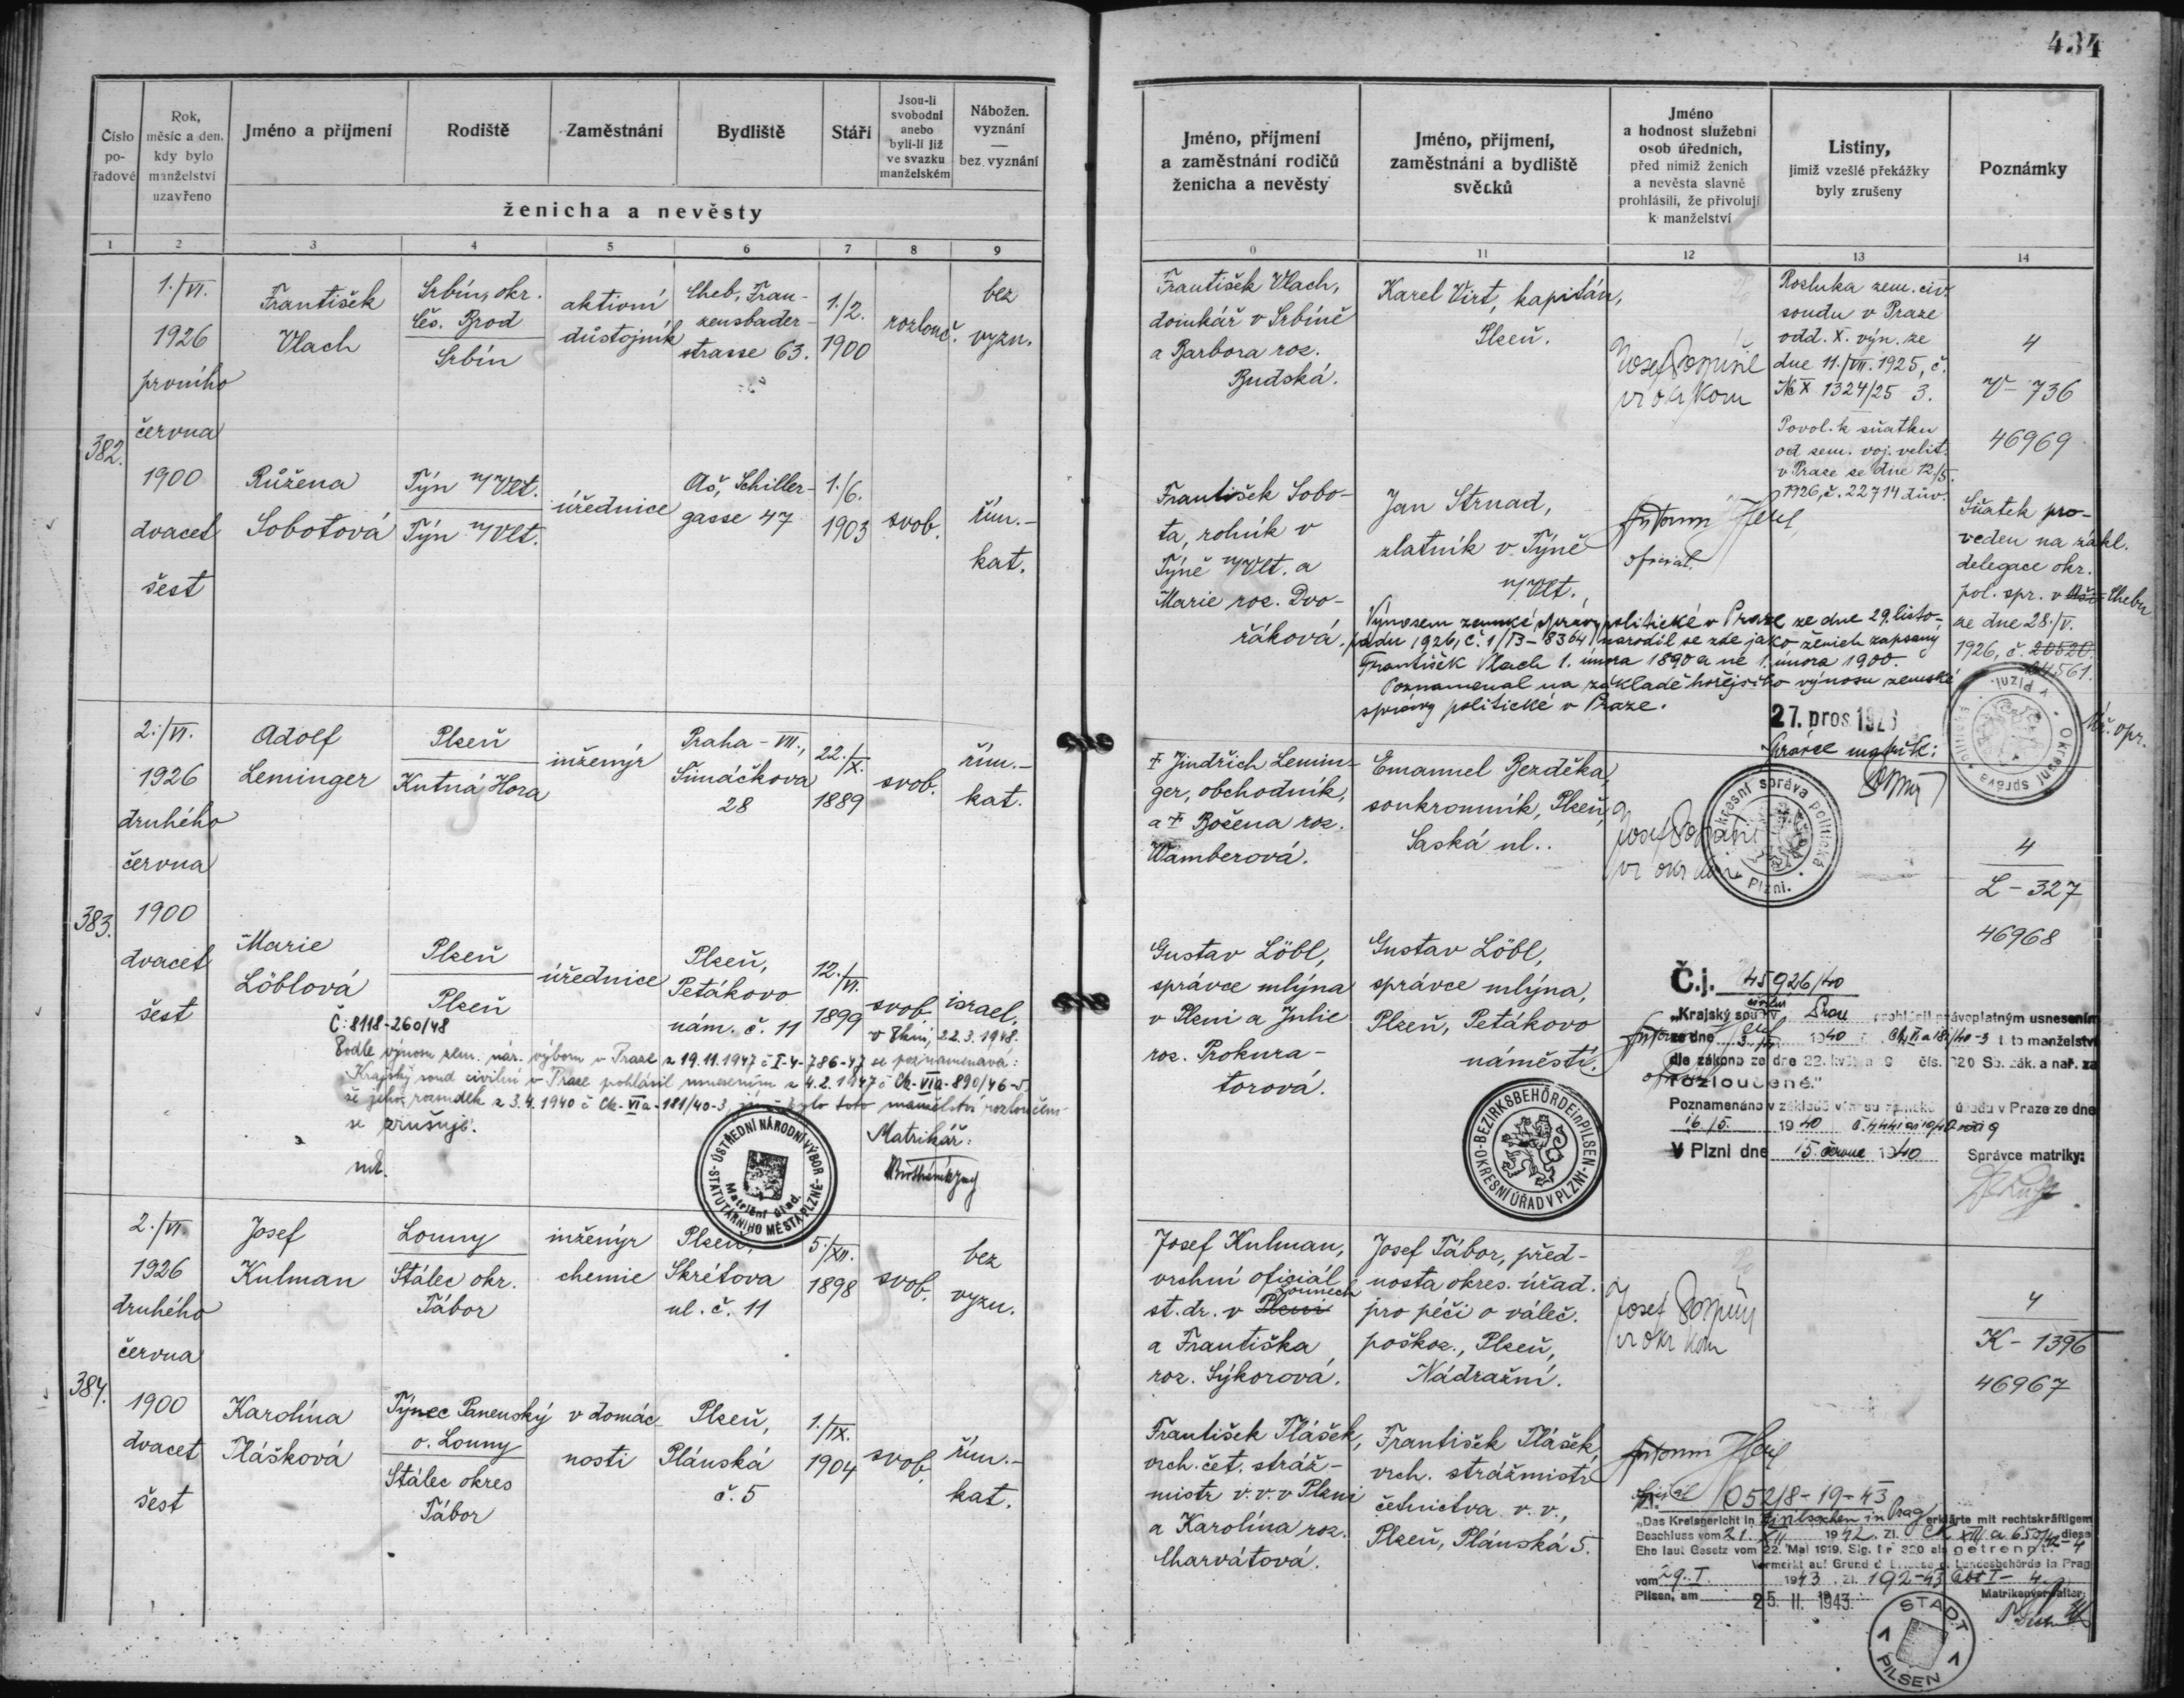 434
Číslo pořadové
Rok, měsíc a den, kdy bylo manželství uzavřeno
Jméno a příjmení
Rodiště
Zaměstnání
Bydliště
Stáří
Jsou-li svobodni anebo byli-li již ve svazku manželském
Nábožen. vyznání — bez vyznání
ženicha a nevěsty
Jméno, příjmení a zaměstnání rodičů ženicha a nevěsty
Jméno, příjmení, zaměstnání a bydliště svědků
Jméno a hodnost služební osob úředních, před nimiž ženich a nevěsta slavně prohlásili, že přivolují k manželství
Listiny, jimiž vzešlé překážky byly zrušeny
Poznámky
1 2 3 4 5 6 7 8 9
0 11 12 13 14
382.
1./VI.
1926
prvního
června
1900
dvacet
šest
František
Vlach
Srbín, okr.
Čes. Brod
Srbín
aktivní
důstojník
Cheb, Fran-
zensbader-
strasse 63.
1./2.
1900
rozlouč.
bez
vyzn.
Růžena
Sobotová
Týn n/Vlt.
Týn n/Vlt.
úřednice
Aš, Schiller-
gasse 47
1./6.
1903
svob.
řím.-
kat.
František Vlach,
domkář v Srbíně
a Barbora roz.
Budská.
Karel Virt, kapitán,
Plzeň.
Josef Pospíšil
vr okr kom
Rozluka zem. civ.
soudu v Praze
odd. X. výn. ze
dne 11./VII. 1925, č.
Nc X 1324/25 3.
Povol. k sňatku
od zem. voj. velit.
v Praze ze dne 12./5.
1926, č. 22714 dův.
4
V- 736
46969
František Sobo-
ta, rolník v
Týně n/Vlt. a
Marie roz. Dvo-
řáková.
Jan Strnad,
zlatník v Týně
n/Vlt.
Antonín
oficiál
Sňatek pro-
veden na zákl.
delegace okr.
pol. spr. v Aši Chebu
ze dne 28./V.
1926, č. 20520.
24561.
Výnosem zemské správy politické v Praze ze dne 29. listo-
padu 1926, č. 1/B-8364 narodil se zde jako ženich zapsaný
František Vlach 1. února 1890 a ne 1. února 1900.
Poznamenal na základě hořejšího výnosu zemské
správy politické v Praze.
27. pros. 1926
Správce matrik:
Okresní správa politická v Plzni.
Okresní správa politická v Plzni.
383.
2./VI.
1926
druhého
června
1900
dvacet
šest
Adolf
Leminger
Plzeň
Kutná Hora
inženýr
Praha - VII.,
Šimáčkova
28
22./X.
1889
svob.
řím.-
kat.
Marie
Löblová
Plzeň
Plzeň
úřednice
Plzeň,
Petákovo
nám. č. 11
12./VI.
1899
svob.
israel.
† Jindřich Lemin-
ger, obchodník,
a † Božena roz.
Wamberová.
Emanuel Bezděka,
soukromník, Plzeň,
Saská ul..
Josef Pospíšil
vr okr kom
4
L - 327
46968
Gustav Löbl,
správce mlýna
v Plzni a Julie
roz. Prokura-
torová.
Gustav Löbl,
správce mlýna,
Plzeň, Petákovo
náměstí.
Č: 8118-260/48
v Plzni, 22.3.1948.
Podle výnosu zem. nár. výboru v Praze z 19.11.1947 č I-4-786-47 se poznamenává:
Krajský soud civilní v Praze prohlásil usnesením z 4.2.1947 č Ck-VIIa-890/46-5
že jeho rozsudek z 3.4.1940 č Ck-VIa-181/40-3, jímž bylo toto manželství rozloučeno
se zrušuje.
Matrikář:
ÚSTŘEDNÍ NÁRODNÍ VÝBOR STATUTÁRNÍHO MĚSTA PLZNĚ
Matriční úřad.
BEZIRKSBEHÖRDE IN PILSEN
OKRESNÍ ÚŘAD V PLZNI
Č.j. 45926/40
„Krajský soud civilní v Praze prohlásil právoplatným usnesením
ze dne 3./IV. 1940 Ck VI a 181/40-3 toto manželství
dle zákona ze dne 22. května 19 čís. 320 Sb. zák. a nař. za
rozloučené."
Poznamenáno v základě výnosu zemského úřadu v Praze ze dne
16./5. 1940
V Plzni dne 15. června 1940
Správce matriky:
384.
2./VI.
1926
druhého
června
1900
dvacet
šest
Josef
Kulman
Louny
Stálec okr.
Tábor
inženýr
chemie
Plzeň,
Skrétova
ul. č. 11
5./XII.
1898
svob.
bez
vyzn.
Karolína
Plášková
Týnec Panenský
o. Louny
Stálec okres
Tábor
v domác-
nosti
Plzeň,
Plánská
č. 5
1./IX.
1904
svob.
řím.-
kat.
Josef Kulman,
vrchní oficiál
st. dr. v Plzni Lounech
a Františka
roz. Sýkorová.
Josef Tábor, před-
nosta okres. úřad.
pro péči o váleč.
poškoz., Plzeň,
Nádražní.
Josef Pospíšil
vr okr kom
4
K - 1396
46967
František Plášek,
vrch. čet. stráž-
mistr v. v. v Plzni
a Karolína roz.
Charvátová.
František Plášek,
vrch. strážmistr
četnictva v. v.,
Plzeň, Plánská 5.
Antonín
oficiál
Zl. 1052/8-19-43
„Das Kreisgericht in Gitschin in Prag erklärte mit rechtskräftigem
Beschluss vom 21. XII 1942. Zl. Ck XIII a 650/42-4 diese
Ehe laut Gesetz vom 22. Mai 1919, Slg. Nr 320 als getrennt."
Vermerkt auf Grund d. Erlasses d. Landesbehörde in Prag
vom 29. I. 1943 Zl. 192-43 Abt I - 4
Pilsen, am 25. II. 1943.
Matrikenverwalter:
STADT PILSEN